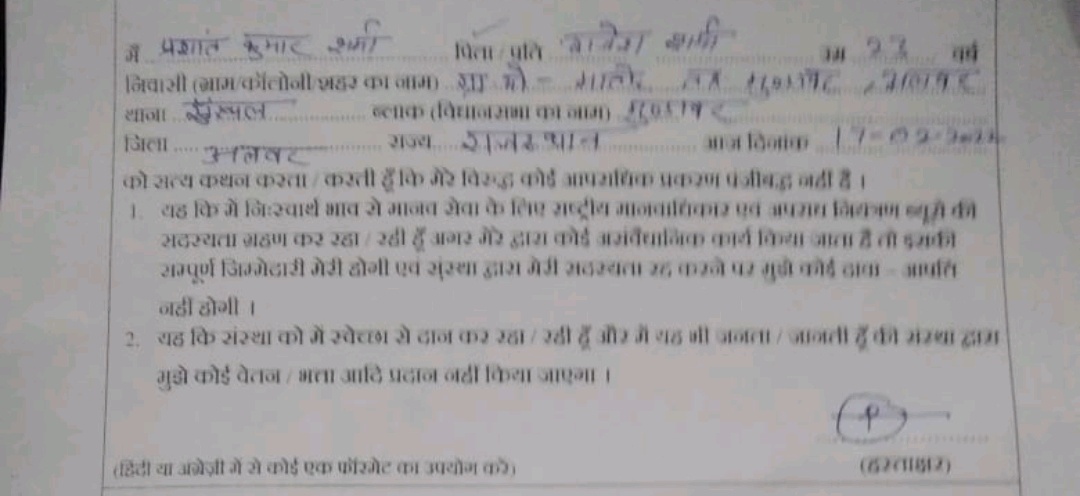 मैं प्रशांत कुमार शर्मा पिता/पति राजेश शर्मा उम्र 23 वर्ष
निवासी (ग्राम/कॉलोनी/शहर का नाम) ग्रा. पो - तह मुण्डावर, अलवर
थाना ब्लाक (विधानसभा का नाम) मुण्डावर
जिला अलवर राज्य राजस्थान आज दिनांक 17-02-2022
को सत्य कथन करता/करती हूँ कि मेरे विरुद्ध कोई आपराधिक प्रकरण पंजीबद्ध नहीं है।
1. यह कि में निःस्वार्थ भाव से मानव सेवा के लिए राष्ट्रीय मानवाधिकार एवं अपराध नियंत्रण ब्यूरो की
सदस्यता ग्रहण कर रहा/रही हूँ अगर मेरे द्वारा कोई असंवैधानिक कार्य किया जाता है तो इसकी
सम्पूर्ण जिम्मेदारी मेरी होगी एवं संस्था द्वारा मेरी सदस्यता रद्द करने पर मुझे कोई दावा - आपत्ति
नहीं होगी।
2. यह कि संस्था को में स्वेच्छा से दान कर रहा/रही हूँ और मैं यह भी जनता/जानती हूँ की संस्था द्वारा
मुझे कोई वेतन/भत्ता आदि प्रदान नहीं किया जाएगा।
(हस्ताक्षर)
(हिंदी या अंग्रेज़ी में से कोई एक फॉरमेट का उपयोग करे)